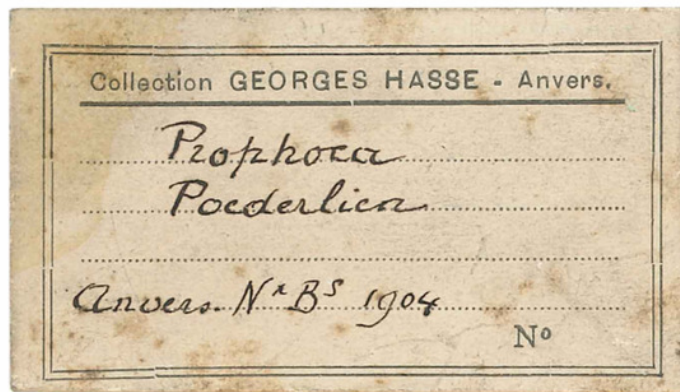 Collection GEORGES HASSE - Anvers.
Prophoca
Poederlien
Anvers. Nx Bs 1904
No